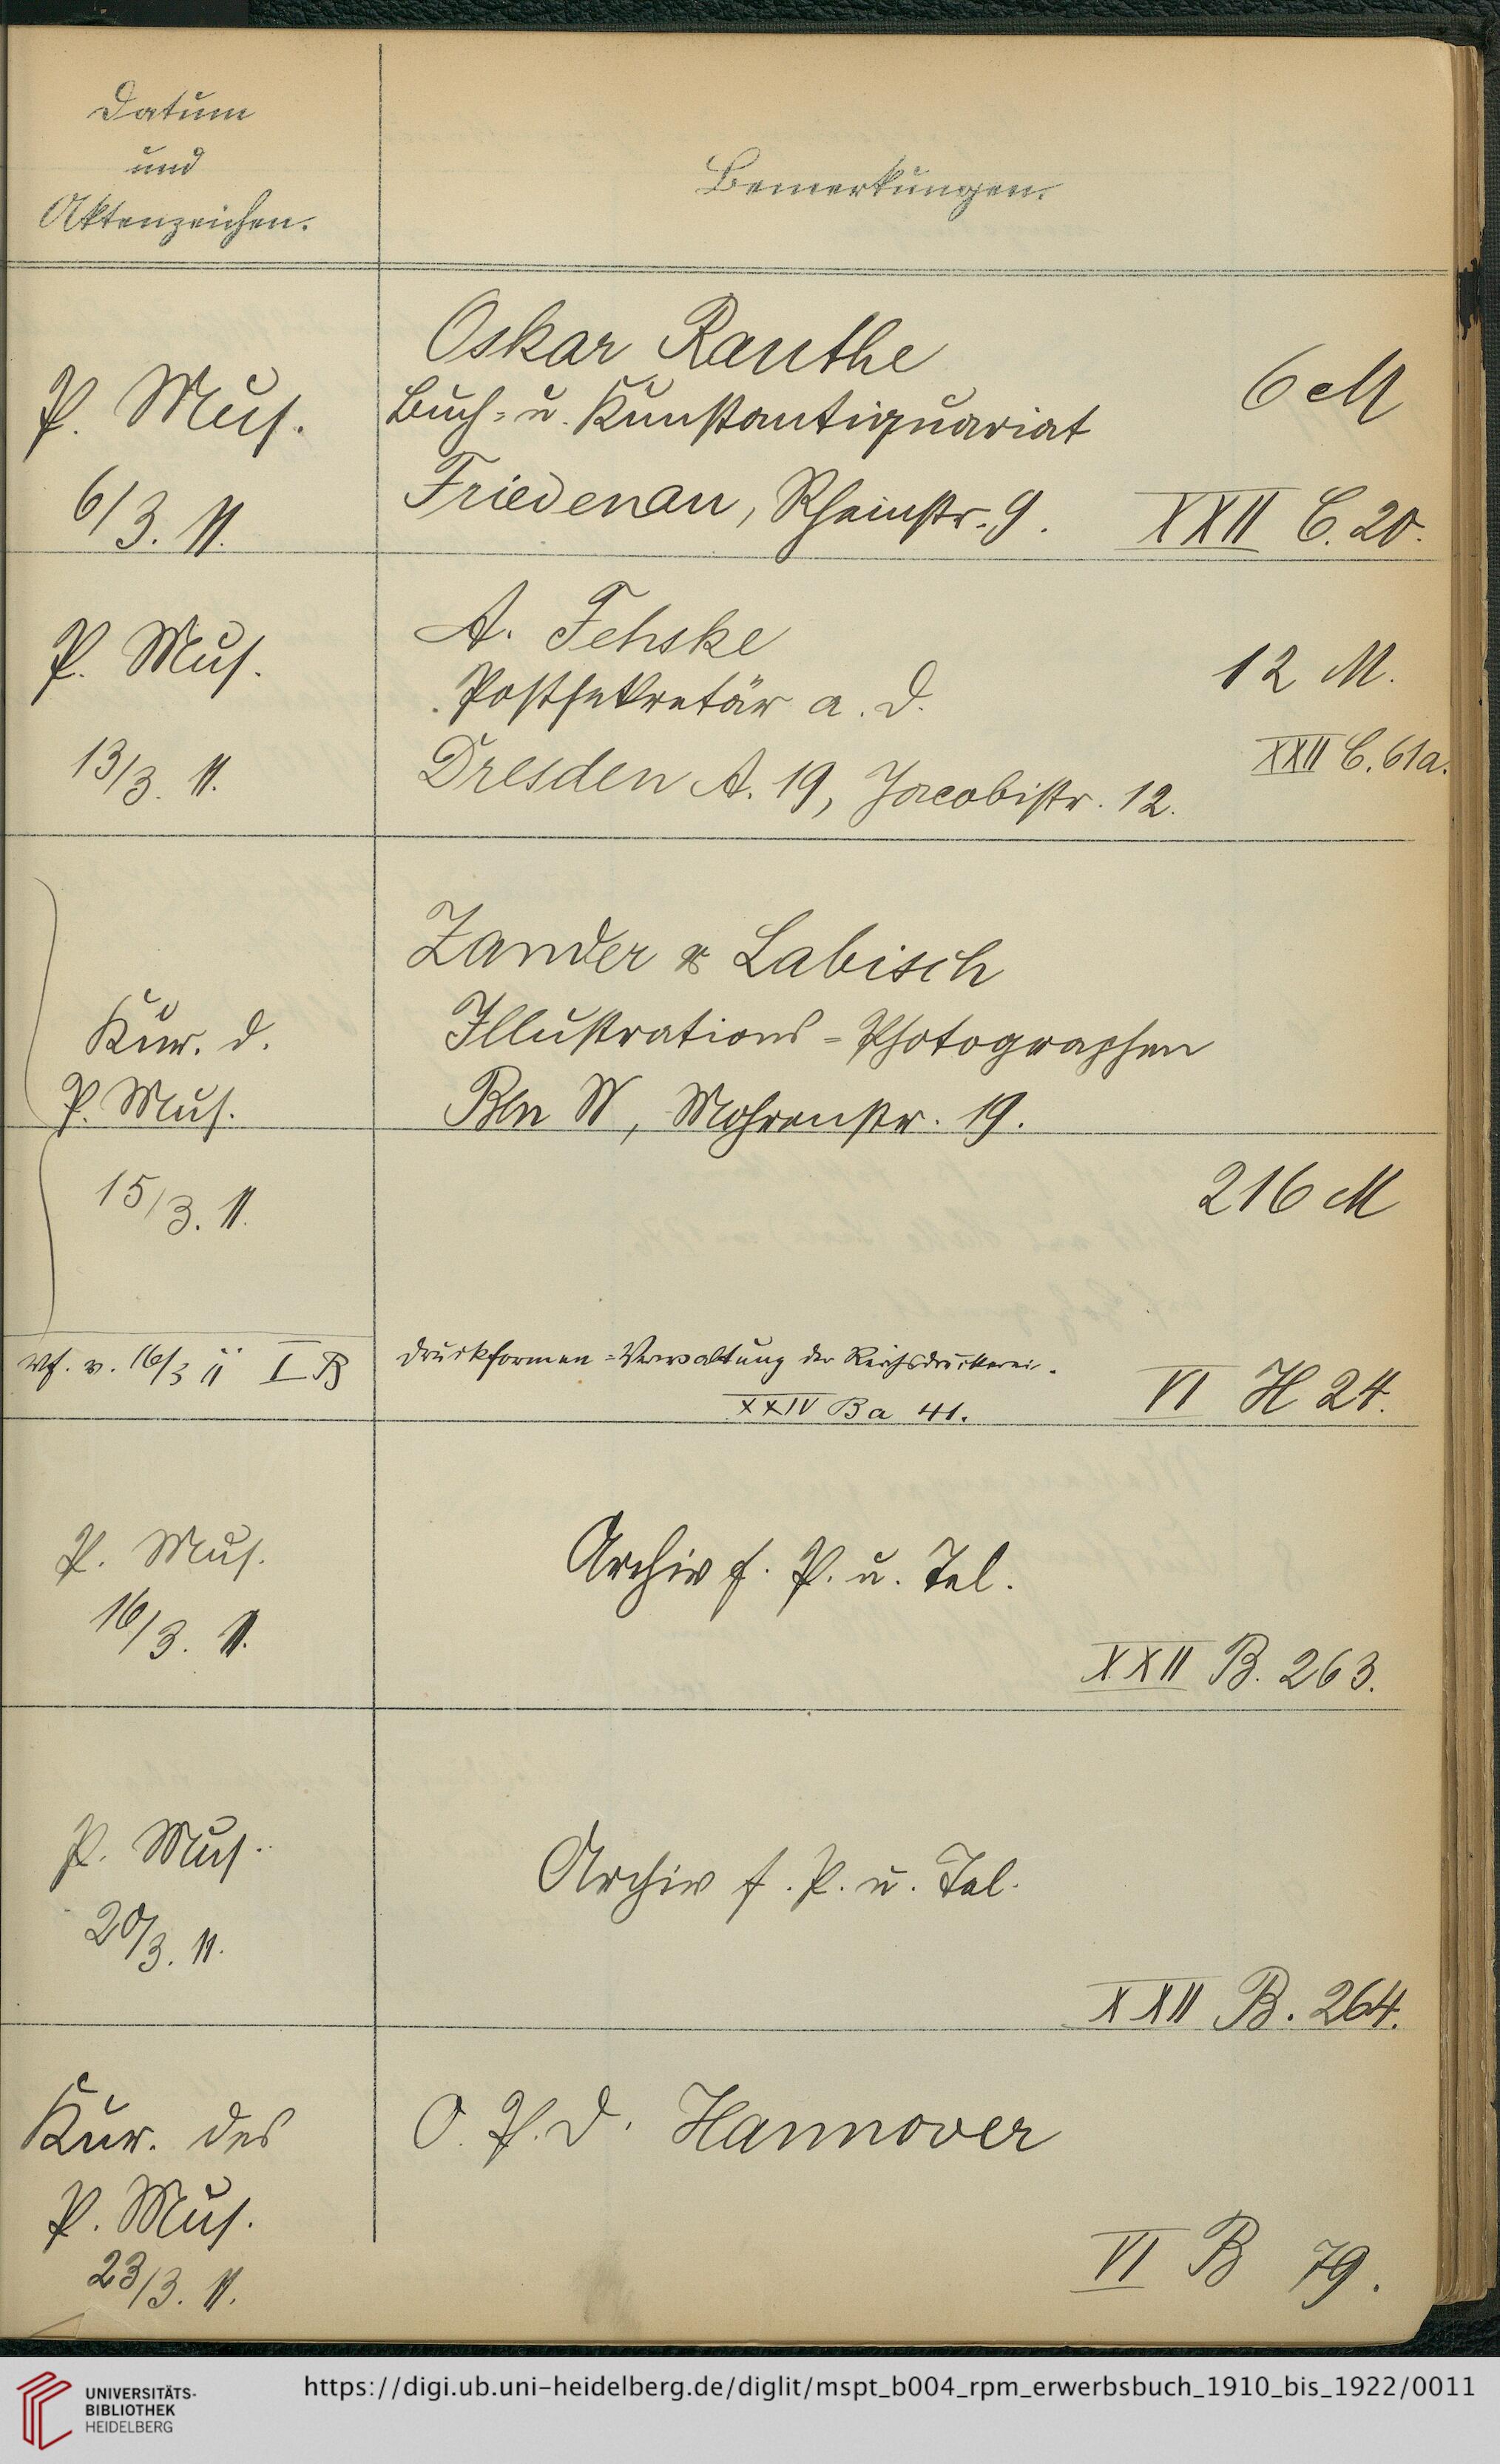 Datum
und
Aktenzeichen.
Bemerkungen.
P. Mus.
6/3. 11.
Oskar Rauthe
Buch- u. Kunstantiquariat
Friedenau, Rheinstr. 9.
6 M
XXII C. 20.
P. Mus.
13/3. 11.
A. Fehske
Postsekretär a. D.
Dresden A. 19, Jacobistr. 12.
12 M.
XXII C. 61a.
Kur. d.
P. Mus.
15/3. 11.
Zander & Labisch
Illustrations-Photographen
Bln W, Mohrenstr. 19.
216 M
Vf. v. 16/3 11 I B
Druckformen-Verwaltung der Reichsdruckerei.
XXIV Ba 41.
VI H 24.
P. Mus.
16/3. 11.
Archiv f. P. u. Tel.
XXII B. 263.
P. Mus.
20/3. 11.
Archiv f. P. u. Tel.
XXII B. 264.
Kur. des
P. Mus.
23/3. 11.
O. P. D. Hannover
VI B 79.
UNIVERSITÄTS-
BIBLIOTHEK
HEIDELBERG
https://digi.ub.uni-heidelberg.de/diglit/mspt_b004_rpm_erwerbsbuch_1910_bis_1922/0011